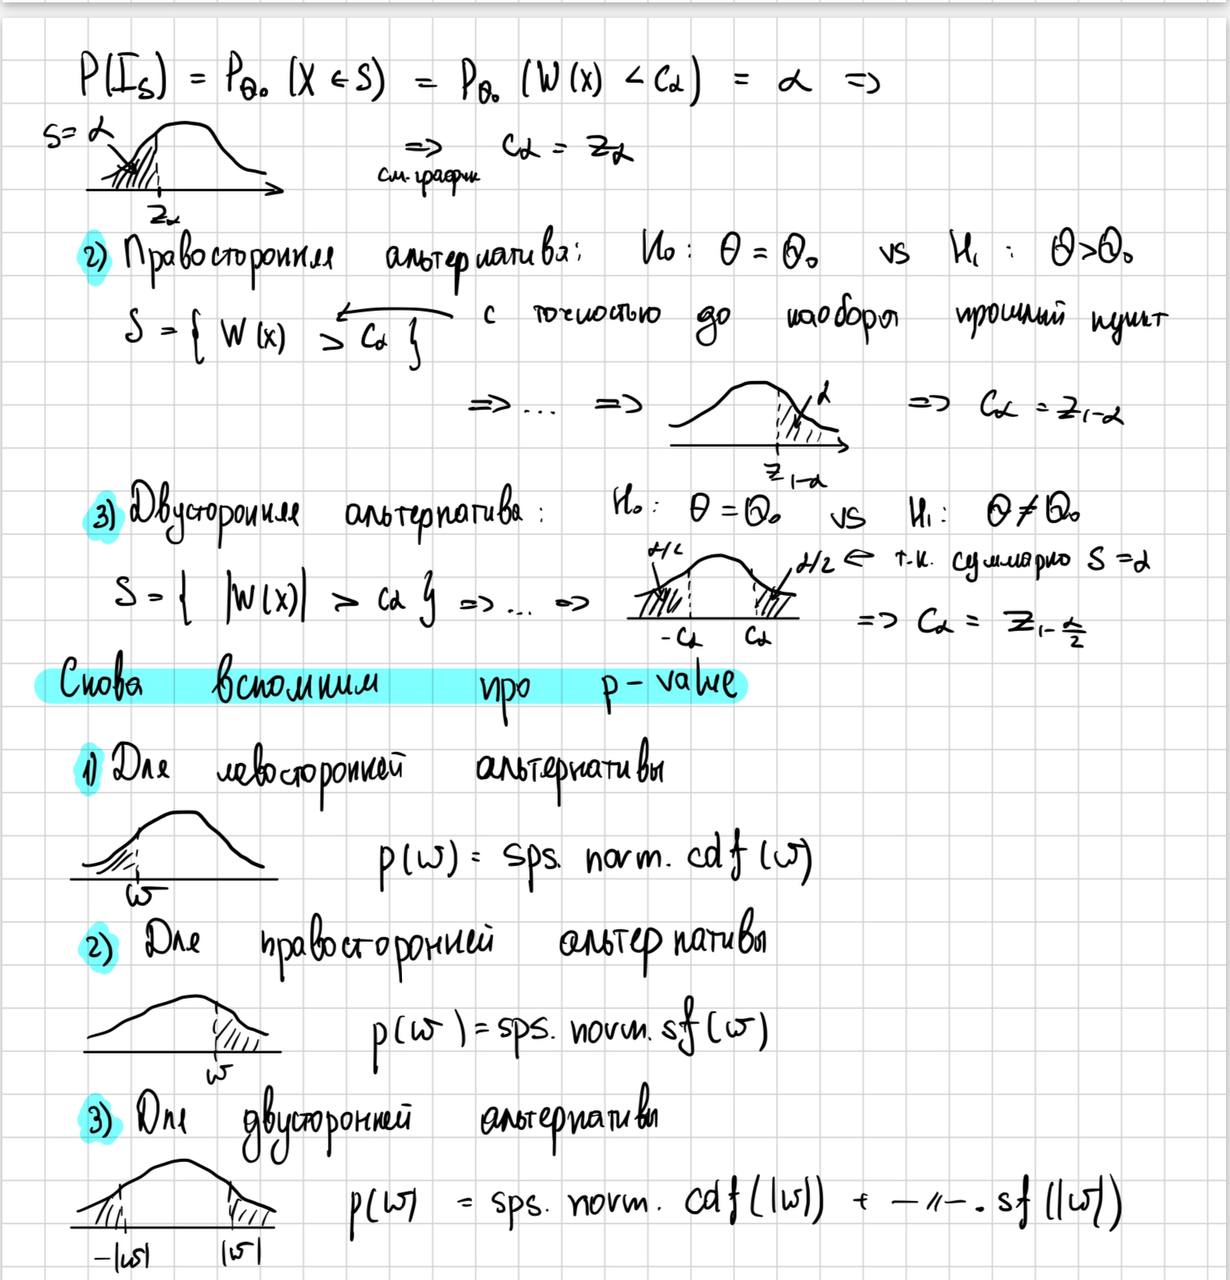 P(I_S) = P_θ₀ (X ∈ S) = P_θ₀ (W(x) < C_α) = α =>
S = α
=> C_α = z_α
см. график
z_α
2) Правосторонняя альтернатива: H₀: θ = θ₀ vs H₁: θ > θ₀
S = { W(x) > C_α } с точностью до наоборот прошлый пункт
=> ... => α => C_α = z_{1-α}
z_{1-α}
3) Двусторонняя альтернатива: H₀: θ = θ₀ vs H₁: θ ≠ θ₀
α/2 α/2 <= т.к. суммарно S = α
S = { |W(x)| > C_α } => ... => => C_α = z_{1-α/2}
-C_α C_α
Снова вспомним про p-value
1) Для левосторонней альтернативы
p(w) = sps. norm. cdf(w)
w
2) Для правосторонней альтернативы
p(w) = sps. norm. sf(w)
w
3) Для двусторонней альтернативы
p(w) = sps. norm. cdf(|w|) + -//-. sf(|w|)
-|w| |w|